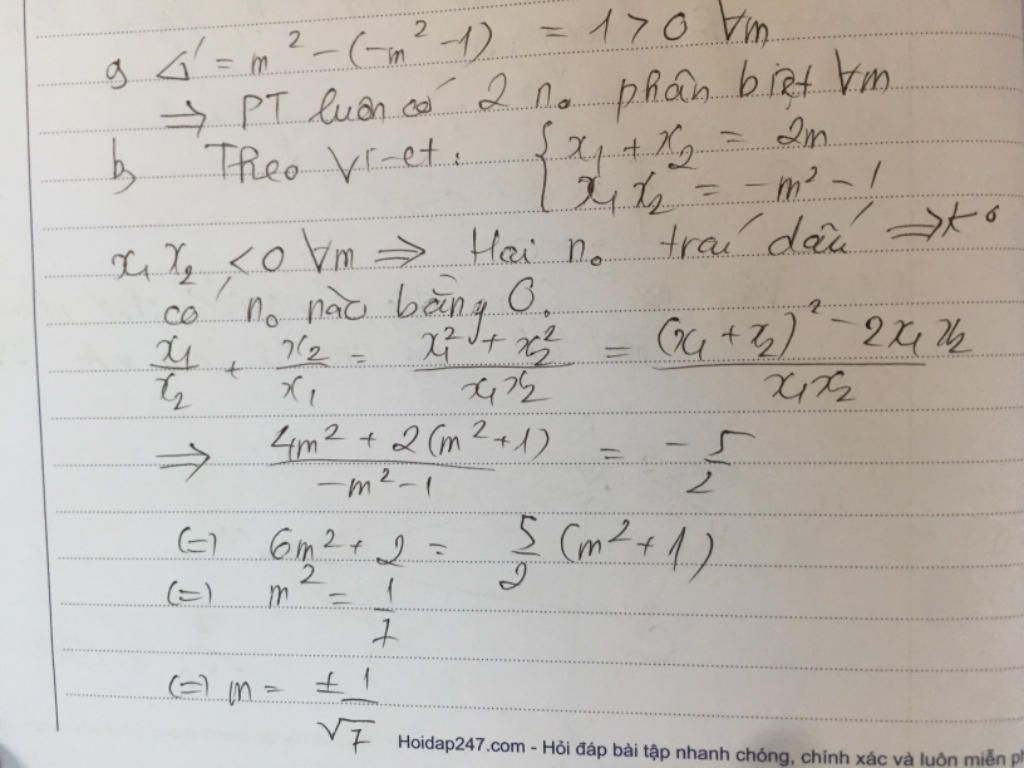 a, Δ' = m² - (-m² - 1) = 1 > 0 ∀m
⇒ PT luôn có 2 n₀ phân biệt ∀m
b, Theo Vi-et: { x₁ + x₂ = 2m
x₁x₂ = -m² - 1
x₁x₂ < 0 ∀m ⇒ Hai n₀ trái dấu ⇒ k⁰
có n₀ nào bằng 0.
x₁/x₂ + x₂/x₁ = (x₁² + x₂²)/(x₁x₂) = ((x₁ + x₂)² - 2x₁x₂)/(x₁x₂)
⇒ (4m² + 2(m² + 1))/(-m² - 1) = -5/2
(=) 6m² + 2 = 5/2 (m² + 1)
(=) m² = 1/7
(=) m = ±1/√7
Hoidap247.com - Hỏi đáp bài tập nhanh chóng, chính xác và luôn miễn ph